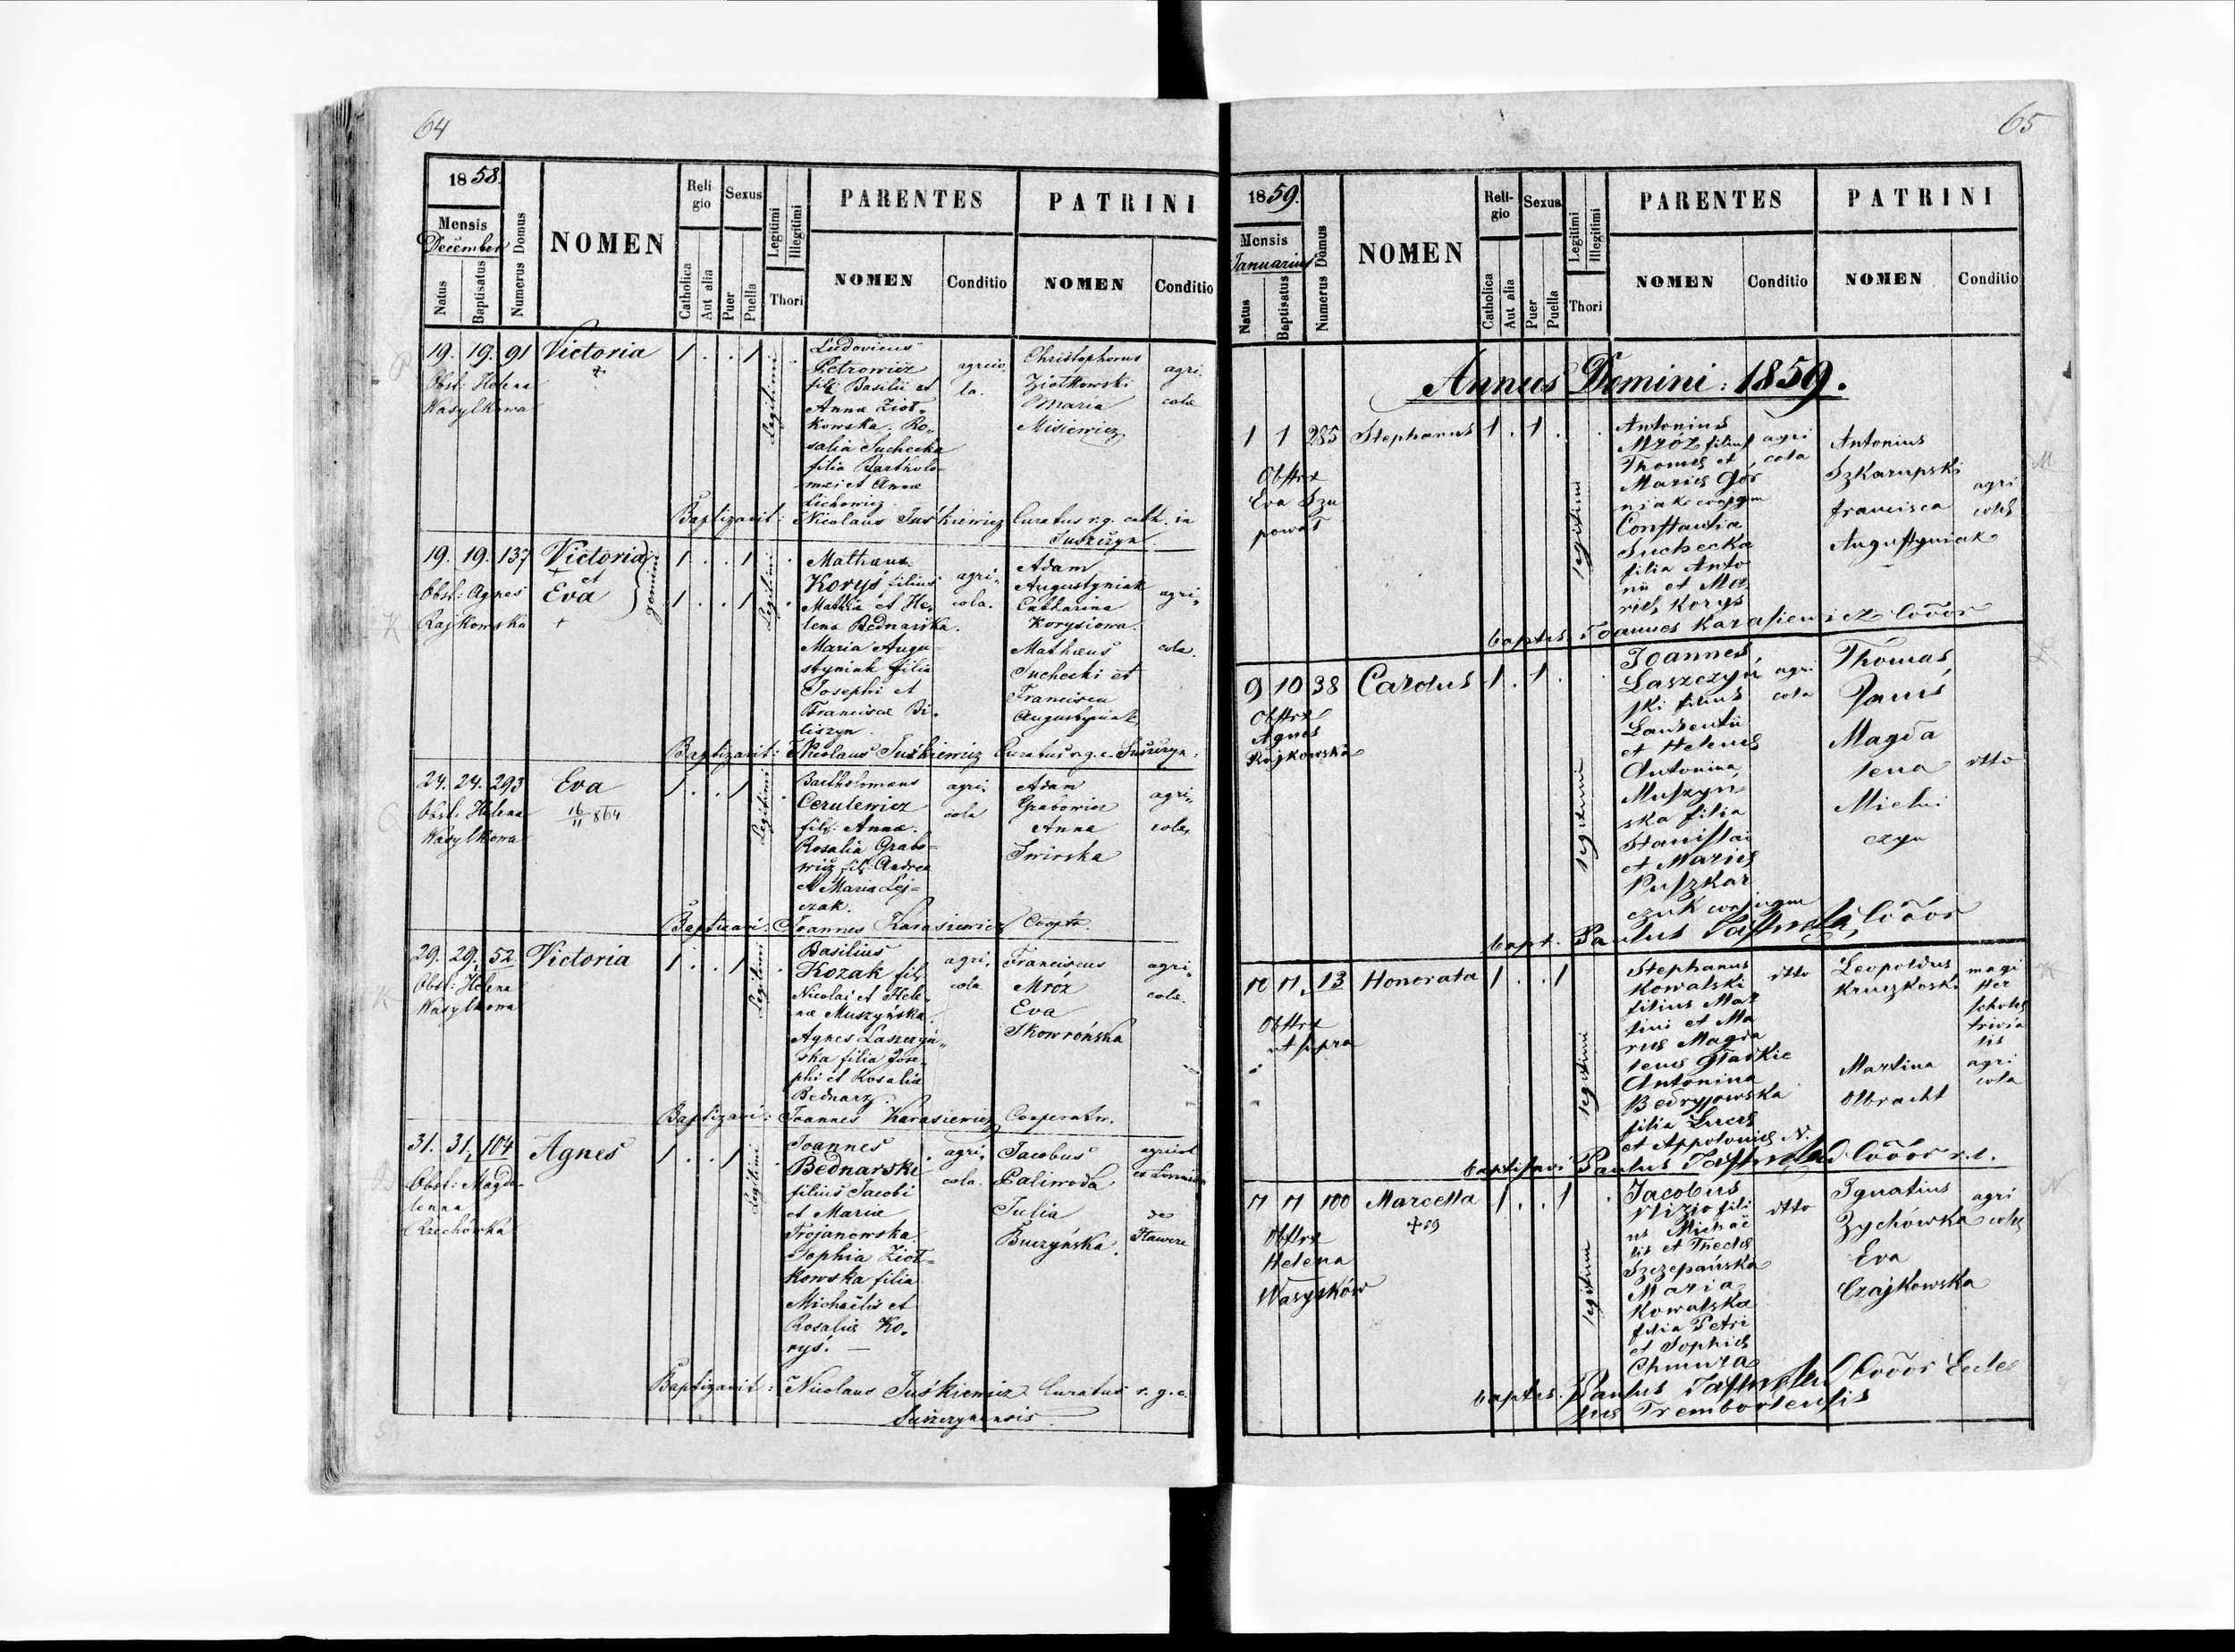 64
1858.
Mensis
December
Natus
Baptisatus
Numerus Domus
NOMEN
Religio
Catholica
Aut alia
Sexus
Puer
Puella
Legitimi
Illegitimi
Thori
PARENTES
NOMEN
Conditio
PATRINI
NOMEN
Conditio
19. 19. 91 Victoria 1 . . 1 .
Obst: Helena
Wasylkowa
Legitimi
Ludovicus
Petrowicz
fils Basilii et
Anna Ziół-
kowska. Ro-
salia Suchecka
filia Bartholo-
mei et Anna
Lichowicz
agrico-
la.
Christophorus
Ziołkowski
Maria
Misiewicz
agri-
cola
Baptizavit: Nicolaus Juśkiewicz Curatus r.g. cath. in
Suszczyn.
19. 19. 137 Victoria 1 . . 1 .
et
Eva 1 . . 1 .
gemini
Obst: Agnes
Rajkowska
Legitimi
Mathaeus
Koryś filius
Mathia et He-
lena Bednarska.
Maria Augu-
styniak filia
Josephi et
Francisca Bi-
liszyn.
agri-
cola.
Adam
Augustyniak
Catharina
Korysiowa.
Mathaeus
Suchecki et
Francisca
Augustyniak
agri-
cola.
Baptizavit: Nicolaus Juśkiewicz Curatus r.g.c. Suszczyn.
24. 24. 293 Eva 1 . . 1 .
16/11 864
Obst: Helena
Wasylkowa
Legitimi
Bartholomeus
Cerulewicz
fils: Anna.
Rosalia Grabo-
wicz fil: Andrea
et Maria Lej-
czak.
agri-
cola
Adam
Grabowicz
Anna
Swirska
agri-
cola
Baptizavi: Joannes Karasiewicz Coopr.
29. 29. 52 Victoria 1 . . 1 .
Obst: Helena
Wasylkowa
Legitimi
Basilius
Kozak fils
Nicolai et Hele-
na Muszyńska.
Agnes Laszczyń-
ska filia Jose-
phi et Rosalia
Bednarz.
agri-
cola
Franciscus
Mróz
Eva
Skowrońska
agri-
cola.
Baptizavi: Joannes Karasiewicz Cooperator.
31. 31. 104 Agnes 1 . . 1 .
Obst: Magda-
lenna
Rzechówka
Legitimi
Joannes
Bednarski
filius Jacobi
et Maria
Trojanowska.
Sophia Ziół-
kowska filia
Michaëlis et
Rosalia Ko-
ryś. —
agri-
cola.
Jacobus
Paliwoda
Julia
Buczyńska.
agricol
de
Baptizavit: Nicolaus Juśkiewicz Curatus r. g. c.
Suszczynensis.
65
1859.
Mensis
Januarius
Natus
Baptisatus
Numerus Domus
NOMEN
Religio
Catholica
Aut alia
Sexus
Puer
Puella
Legitimi
Illegitimi
Thori
PARENTES
NOMEN
Conditio
PATRINI
NOMEN
Conditio
Annus Domini: 1859.
1 1 285 Stephanus 1 . 1 .
Obstrx
Eva Szu
pował
legitimi
Antonius
Mróz filius
Thomes et
Maries Gór
niak conjgum
Constantia
Suchecka
filia Anto
nii et Ma
ries Korys
agri
cola
Antonius
Szkarupski
francisca
Augustyniak
agri
coles
baptis. Joannes Karasiewicz Cooor
9 10 38 Carolus 1 . 1 .
Obstrx
Agnes
Rajkowska
legitimi
Joannes
Laszczyń
ski filius
Laurentii
et Helenes
Antonina
Muszyn
ska filia
Stanislai
et Maries
Puszkar
czuk conjugum
agri
cola
Thomas
Janis
Magda
lena
Mielni
czyn
dtto
bapt. Paulus Cooor
11 11 13 Honorata 1 . . 1
Obstrx
ut supra
legitimi
Stephanus
Kowalski
filius Mar
tini et Ma
ries Magda
lenes
Antonina
Bedryjowska
filia Luces
et Appolonies N.
dtto
Leopoldus
Kruczkoski
Martina
Olbracht
magi
ster
scholes
trivia
lis
agri
cola
baptisavi Paulus Cooor r.l.
11 11 100 Marcella 1 . . 1 .
+59
Obstrx
Helena
Wasyłków
legitimi
Jacobus
Mizio fili
us Michaë
lis et Thecles
Szczepańska
Maria
Kowalska
filia Petri
et Sophies
Chmura
dtto
Ignatius
Zychówka
Eva
Czajkowska
agri
coles
baptis. Paulus Cooor Eccle
sies Trembovlensis